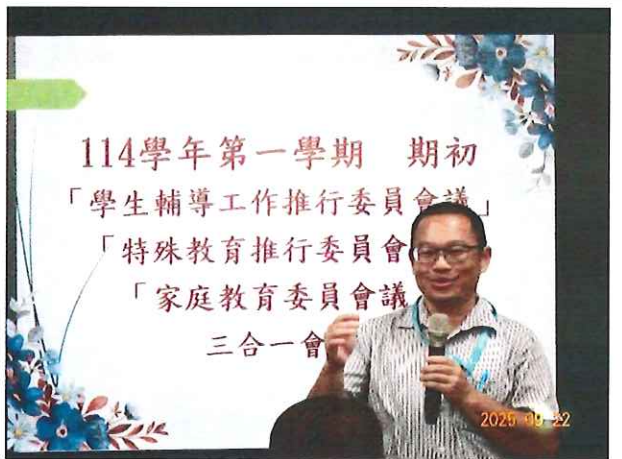 114學年第一學期 期初
「學生輔導工作推行委員會議」
「特殊教育推行委員會
「家庭教育委員會議
三合一會
2025 09 22